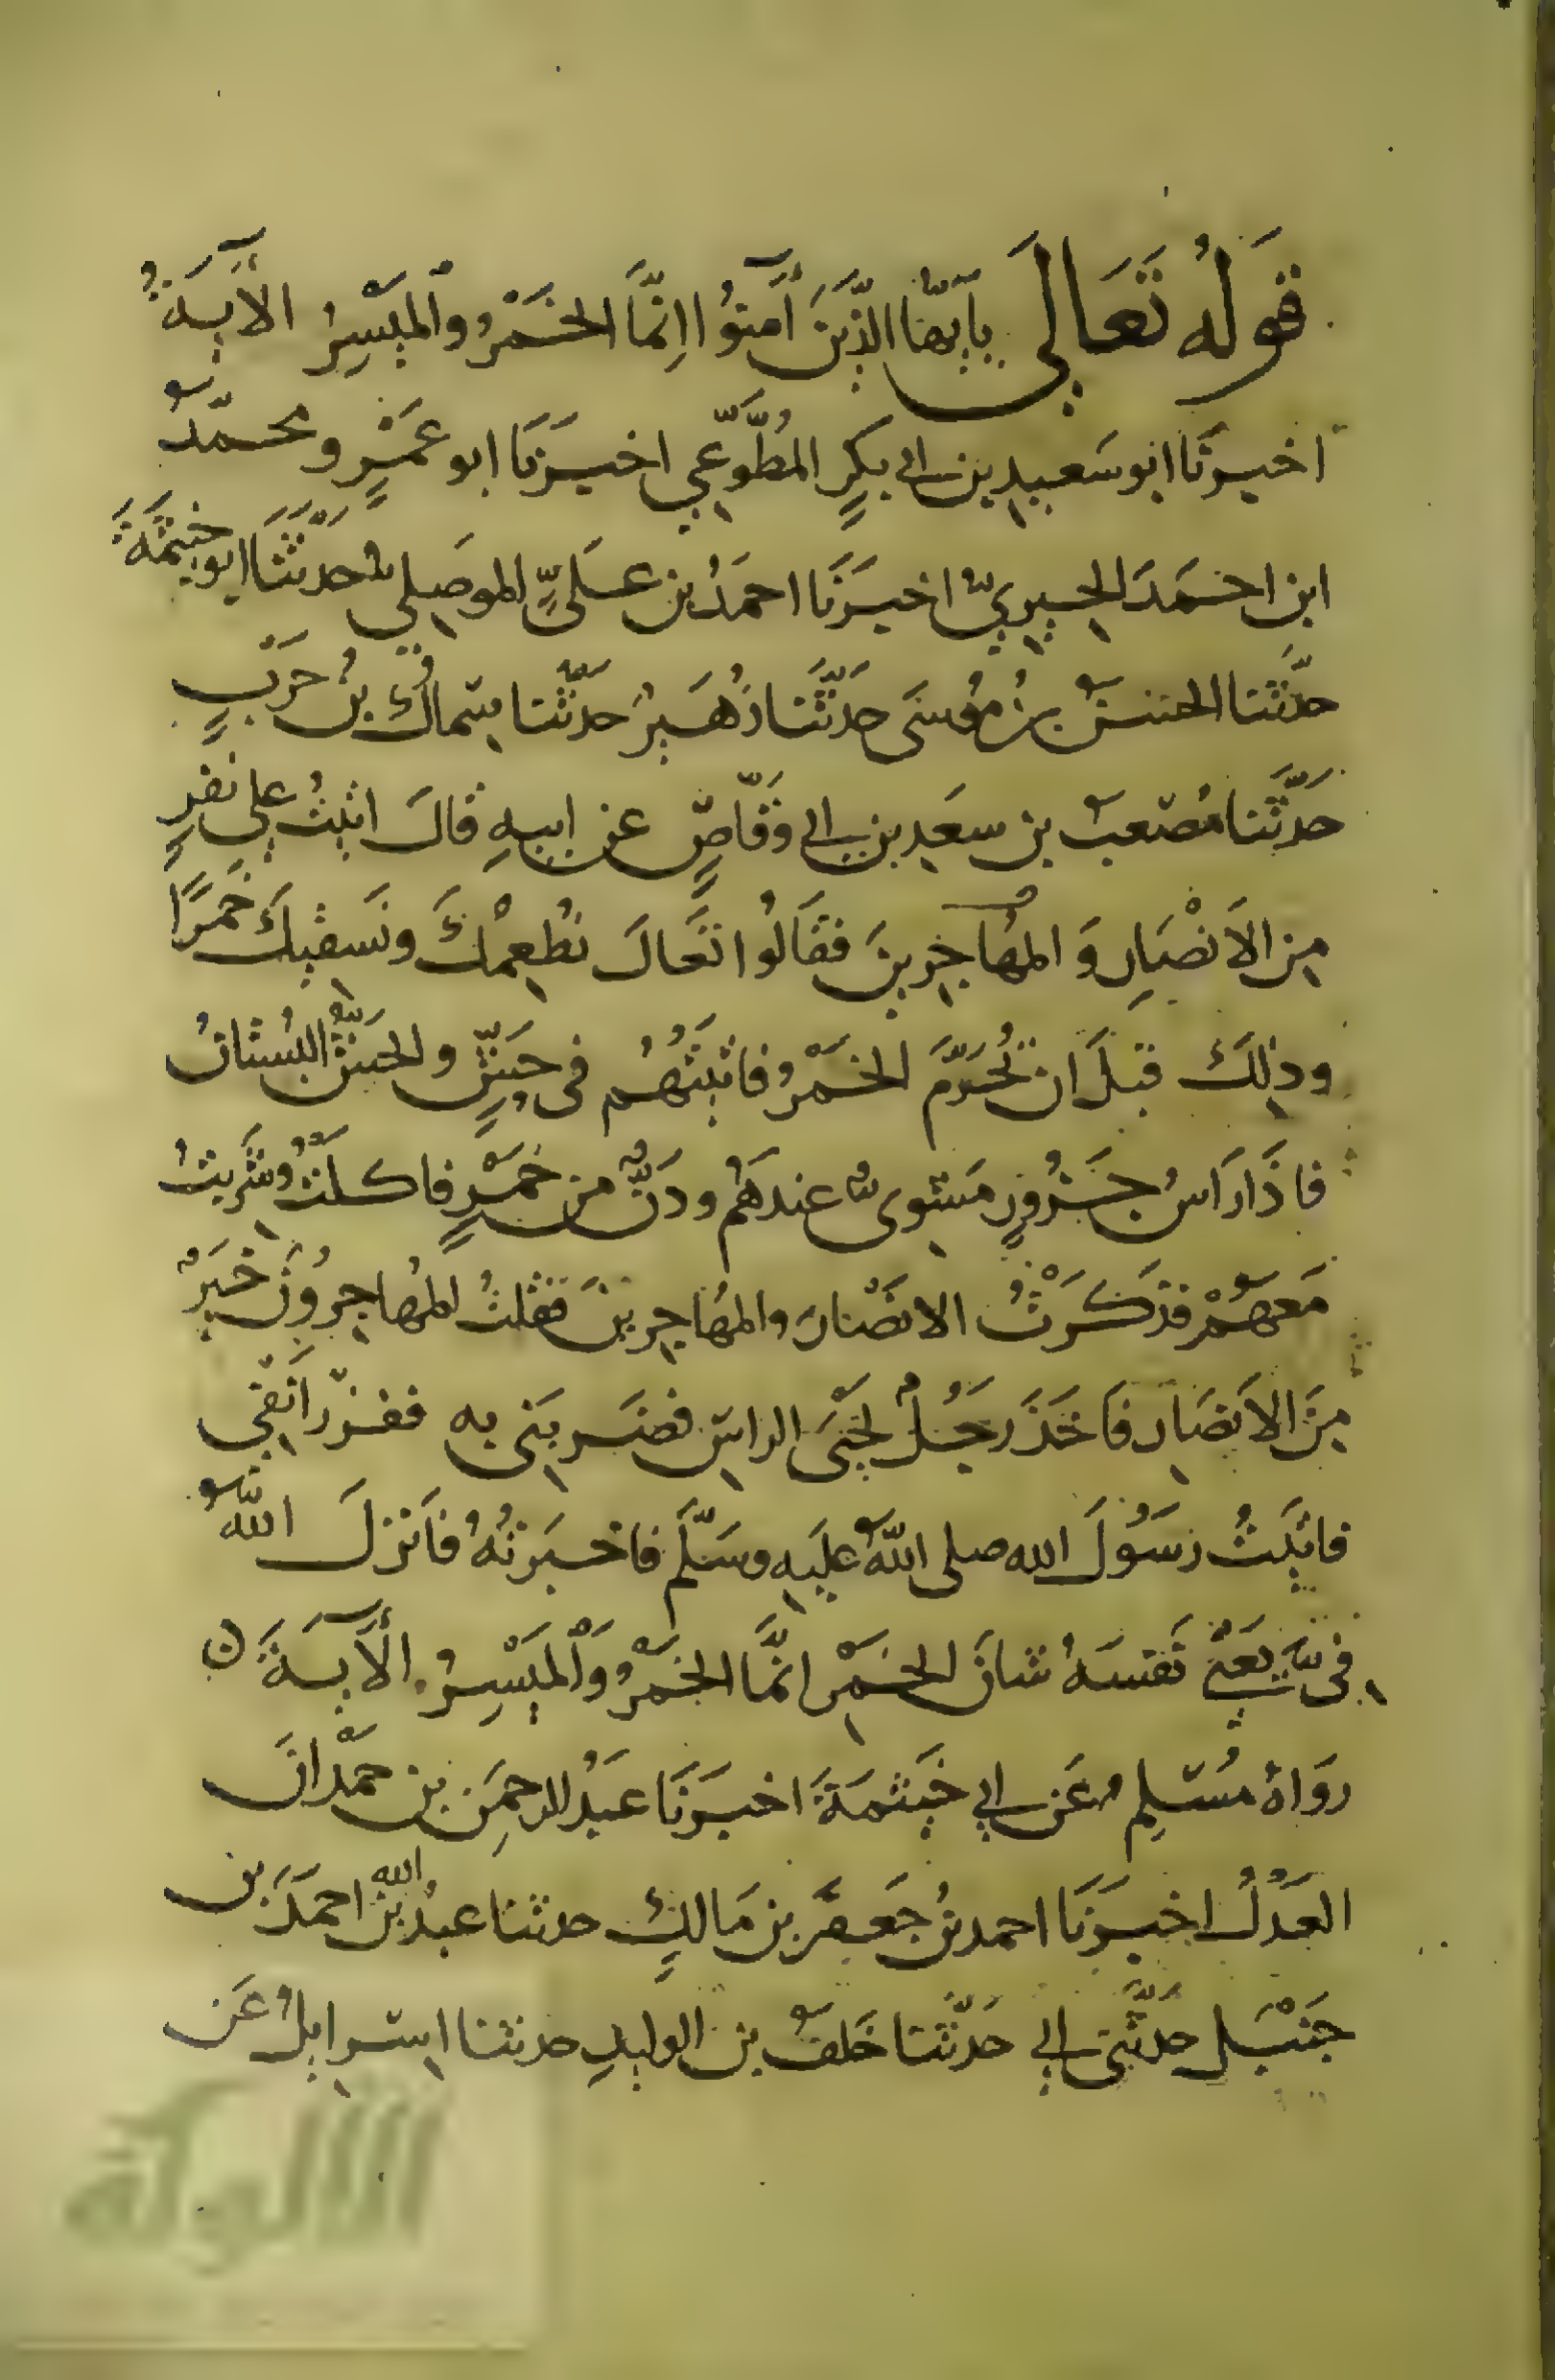 قَولُه تَعَالَى يَا أَيُّهَا الَّذِينَ آمَنُوا إِنَّمَا الخَمْرُ وَالمَيْسِرُ الآيَةُ
اخبرنَا ابو سَعيدِ بن ابي بكرٍ المُطَّوّعِي اخبرَنَا ابو عَمْرٍو محمدُ
ابن احمَدَ الحِيرِيُّ اخبرَنَا احمَدُ بن عَلىٍّ الموصِلي حدثَنَا ابو خيثمَةَ
حدَّثنا الحسنُ بنُ مُوسَى حدَّثَنا زُهَيرُ حدّثَنا سِماكُ بنُ حَرْبٍ
حَدَّثَنا مُصْعَبُ بن سَعَدِ بن ابي وَقّاصٍ عن ابيهِ قالَ اتيتُ على نفرٍ
مِن الاَنْصَارِ وَ المُهَاجِرينَ فقَالُوا تَعَالَ نُطْعِمْكَ ونَسقيكَ خَمرًا
وذلِكَ قبلَ ان تُحَرَّمَ الخَمْرُ فاتيتُهُم فى حَشٍّ والحَشُّ البُستانُ
فاذَا رَاسُ جَزُورٍ مَشوىٌّ عندَهُم ودَنٌّ من خَمْرٍ فاكلتُ وشَرِبتُ
مَعَهُمْ فذكَرْتُ الانصَارَ والمهَاجِرينَ فقلتُ المُهَاجِرُونَ خَيرٌ
مِنَ الاَنصَارِ فَاخَذَ رجُلٌ لَحْىَ الراسِ فضَربَنى به ففزَر اَنفِي
فاتَيتُ رَسُولَ الله صلى اللهُ عليَهِ وسَلَّمَ فاخبَرتُهُ فَانزلَ اللهُ
فىَّ يَعْنِي نَفسَهُ شانَ الخمْرِ انَّمَا الخمْرُ وَالمَيْسِرُ الآيَةَ ن
روَاهُ مُسْلِمٌ عَن ابي خَيثمَةَ اخبرَنَا عَبدُ الرحمَن بن حمْدانَ
العَدْلُ اخبرَنَا احمدُ بنُ جَعفَرِ بن مَالكٍ حدثنا عبدُ الله بنُ احمَدَ بن
حنْبَلٍ حدَّثَنى ابي حَدَّثَنا خَلَفُ بن الوليدِ حدثنا اسرايلُ عَن
الألوكة